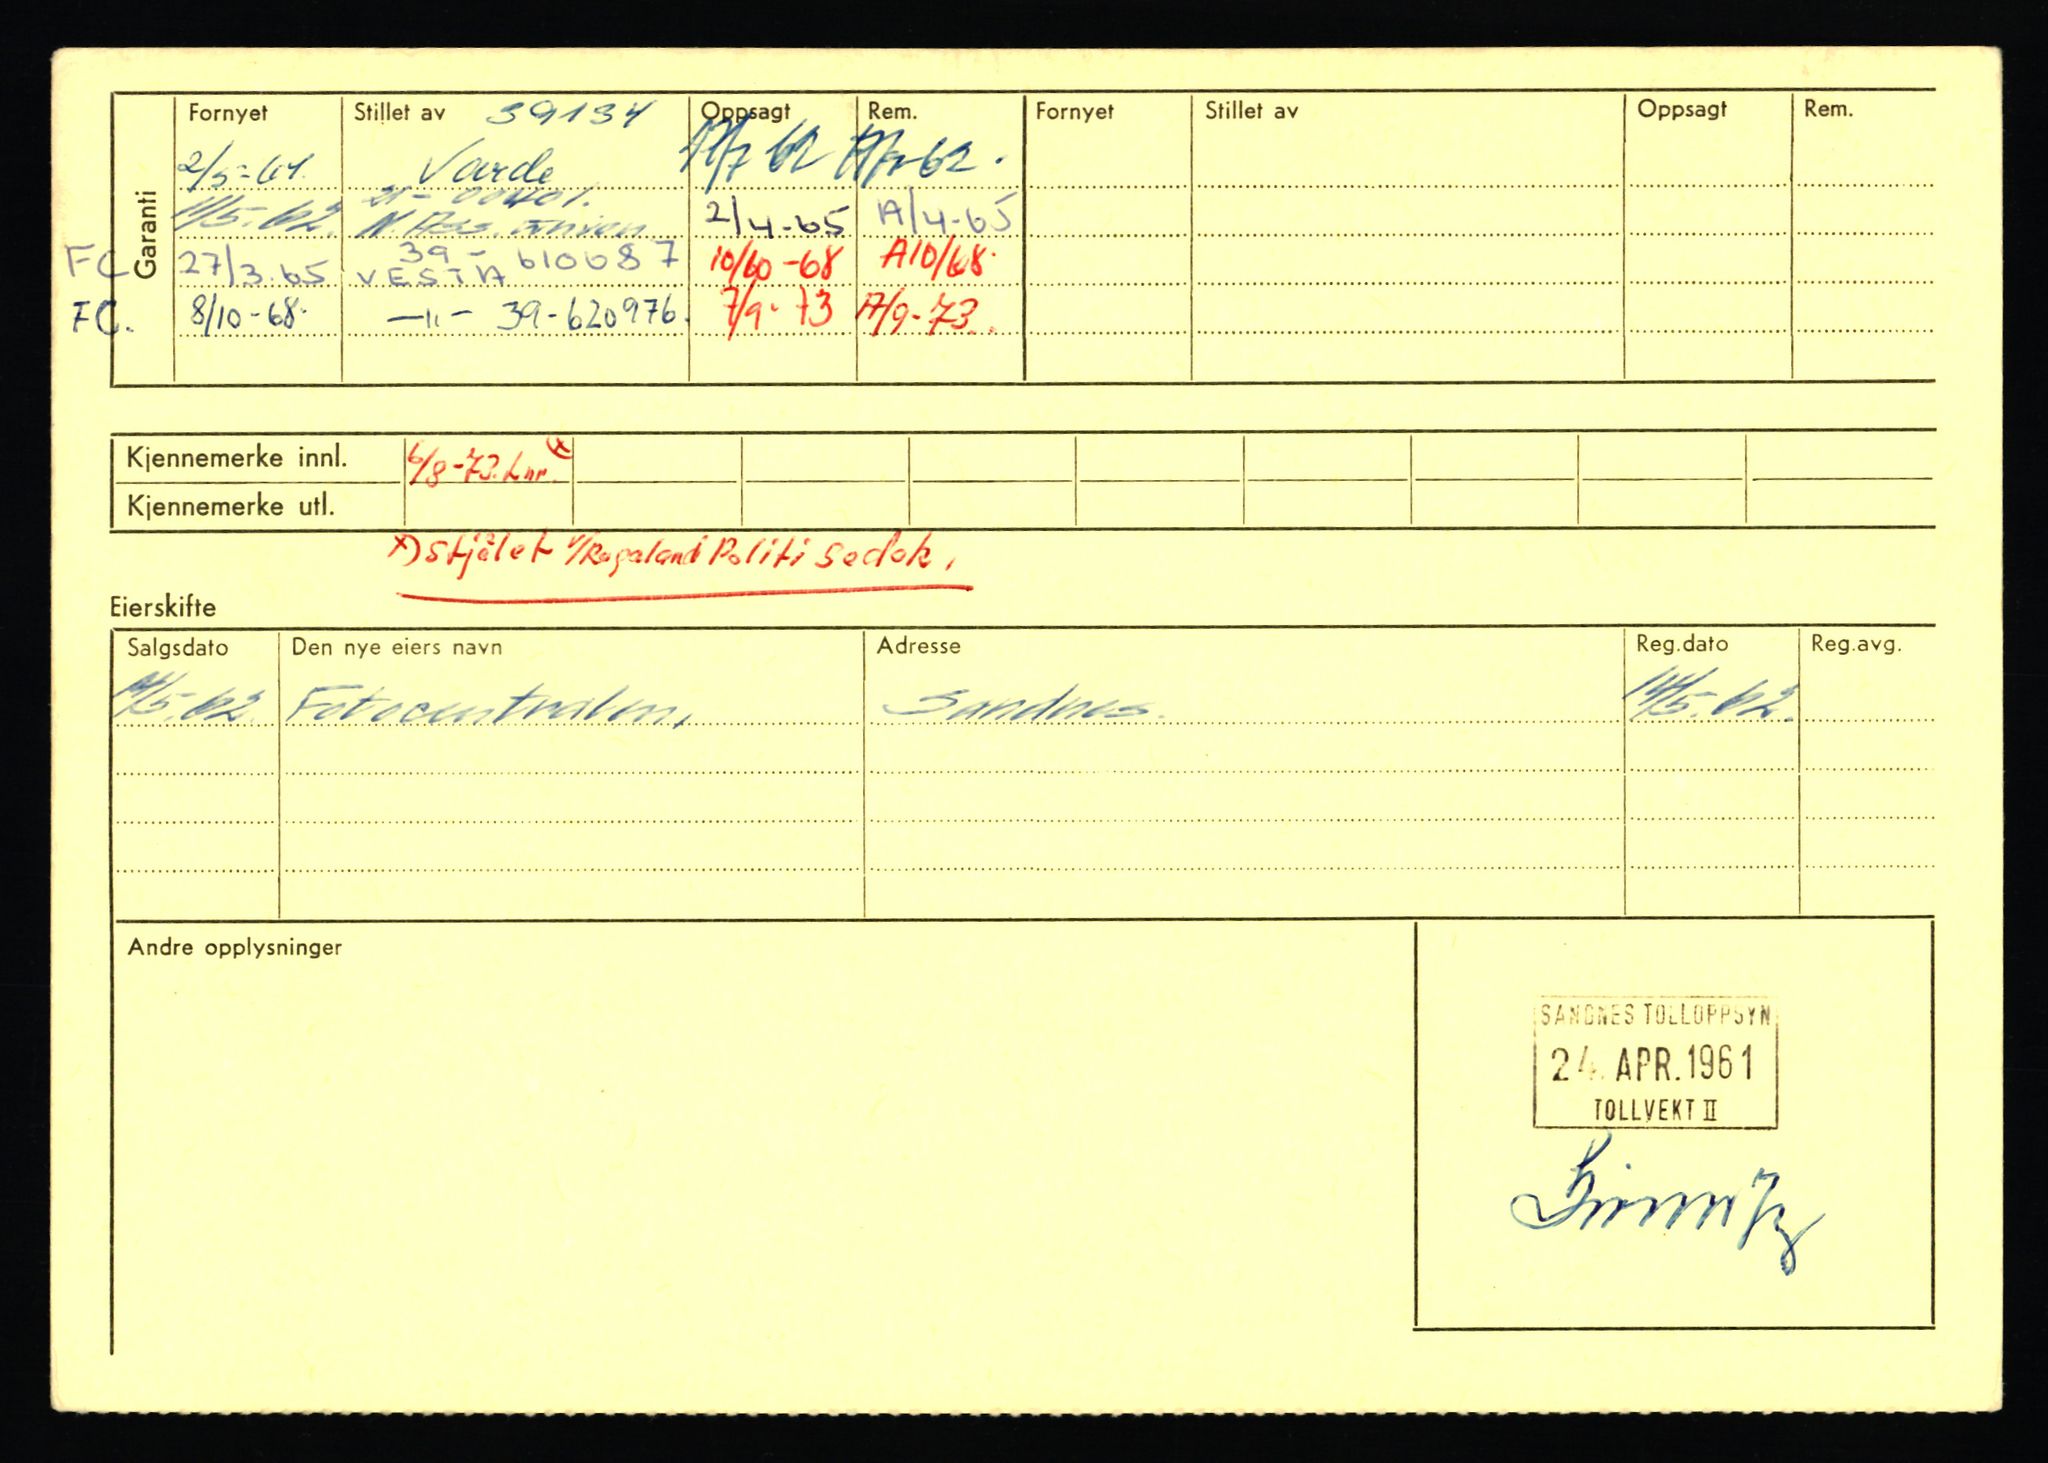 Fornyet Stillet av 39134 Oppsagt Rem. Fornyet Stillet av Oppsagt Rem.
Garanti
2/5-61. Varde 62 62.
21-00401.
11/5.62. N. Ass. Union 2/4-65 A/4-65
FC 27/3.65 39-610687 VESTA 10/10-68 A10/68.
FC. 8/10-68. —"— 39-620976. 7/9-73 A/9-73.
Kjennemerke innl. 6/8-73. Lnr. x)
Kjennemerke utl.
x) stjålet v/Rogaland Politi sedok.
Eierskifte
Salgsdato Den nye eiers navn Adresse Reg.dato Reg.avg.
Fotocentralen, Sandnes. 14/5.62.
Andre opplysninger
SANDNES TOLLOPPSYN
24. APR. 1961
TOLLVEKT II